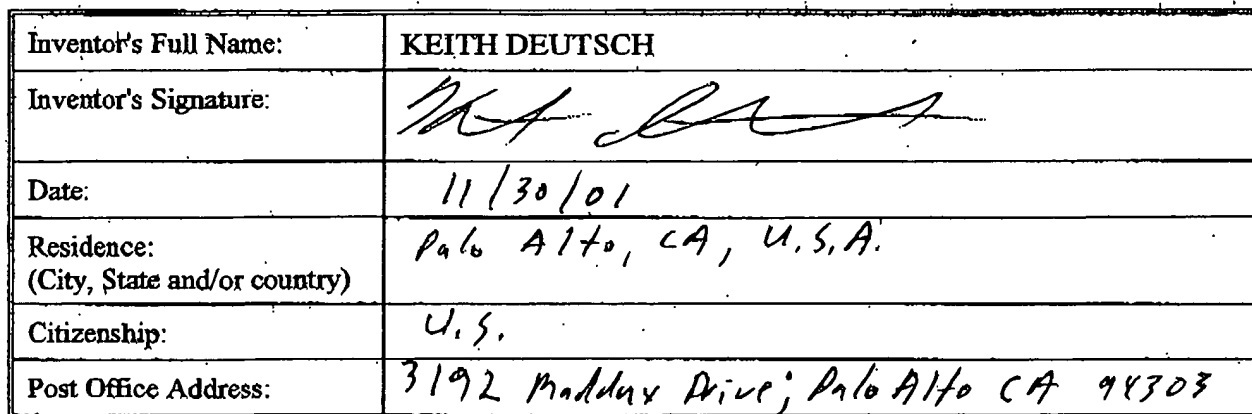 Inventor's Full Name: KEITH DEUTSCH
Inventor's Signature:
Date: 11/30/01
Residence: Palo Alto, CA, U.S.A.
(City, State and/or country)
Citizenship: U.S.
Post Office Address: 3192 Maddux Drive; Palo Alto CA 94303